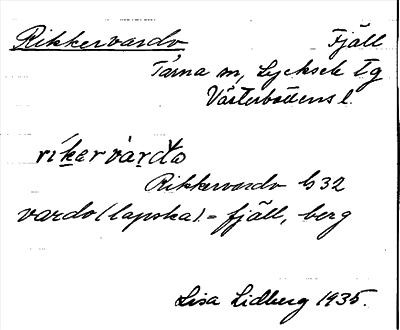 Rikkervardo Fjäll
Tärna sn, Lycksele tg
Västerbottens l.
ríkarvàrdo
Rikkervardo b 32
vardo (lapska) = fjäll, berg
Lisa Lidberg 1935.